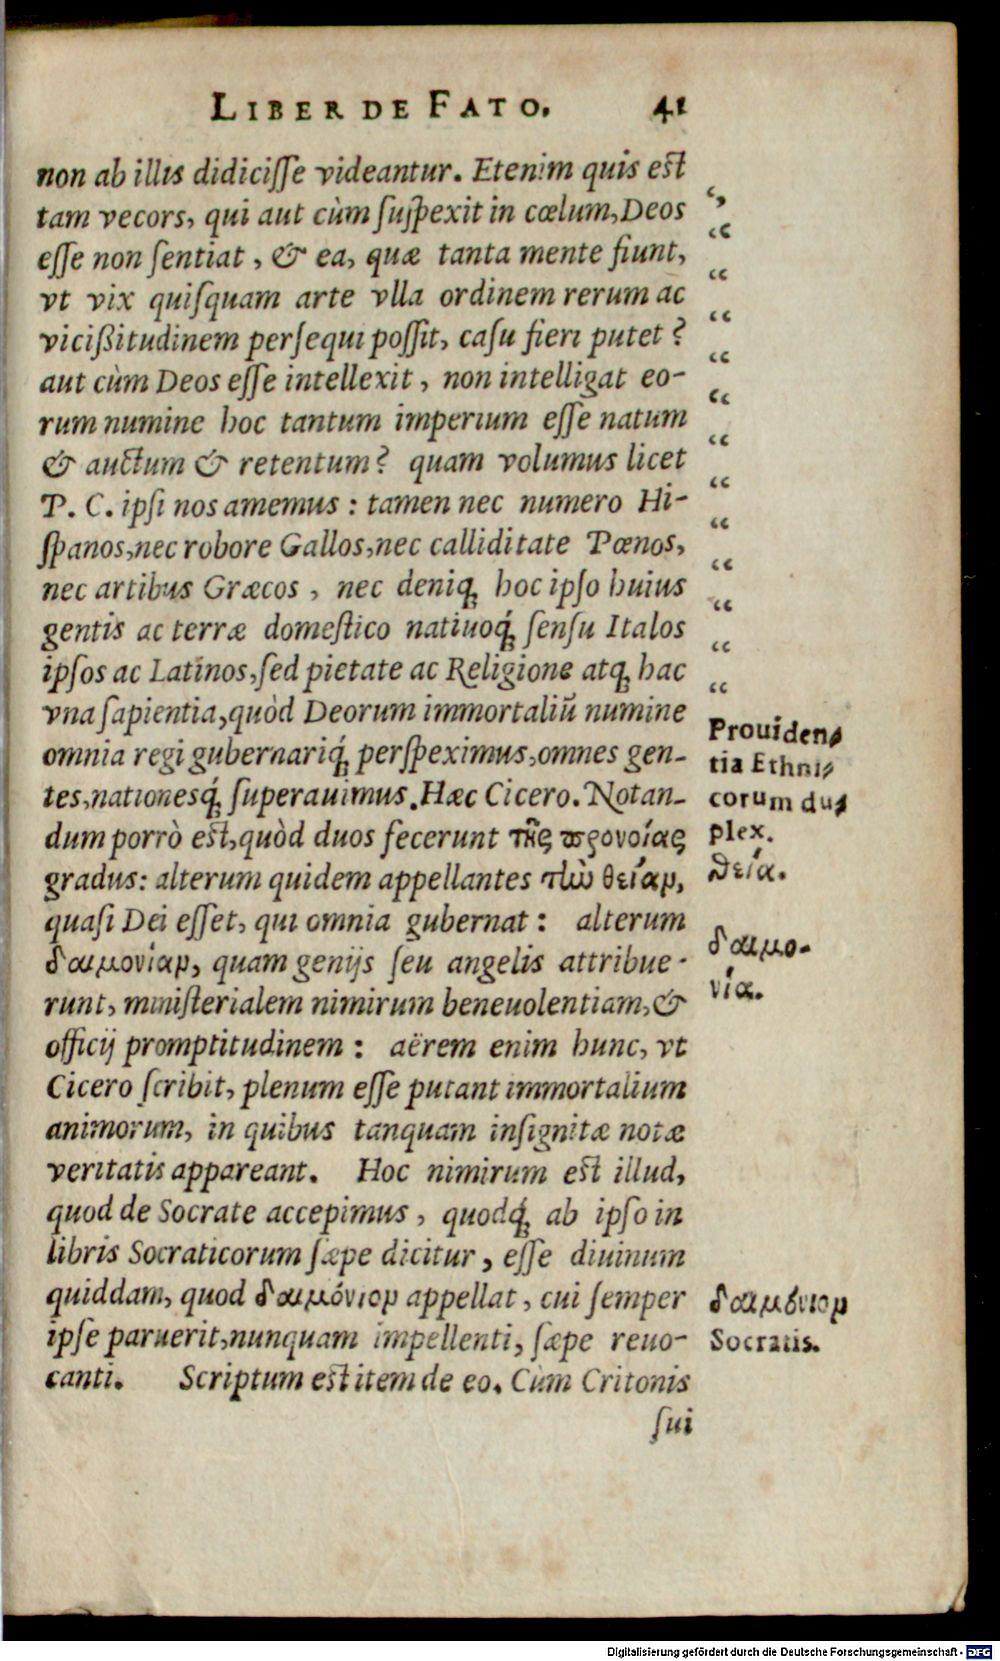 LIBER DE FATO. 41
non ab illis didiciſſe videantur. Etenim quis est
tam vecors, qui aut cùm ſuſpexit in cœlum, Deos
eſſe non ſentiat, & ea, quæ tanta mente fiunt,
vt vix quiſquam arte vlla ordinem rerum ac
vicißitudinem perſequi poſſit, caſu fieri putet?
aut cùm Deos eſſe intellexit, non intelligat eo-
rum numine hoc tantum imperium eſſe natum
& auctum & retentum? quam volumus licet
P. C. ipſi nos amemus: tamen nec numero Hi-
ſpanos, nec robore Gallos, nec calliditate Pœnos,
nec artibus Græcos, nec deniq; hoc ipſo huius
gentis ac terræ domeſtico natiuoq́; ſenſu Italos
ipſos ac Latinos, ſed pietate ac Religione atq; hac
vna ſapientia, quòd Deorum immortaliũ numine
omnia regi gubernariq́; perſpeximus, omnes gen-
tes, nationesq́; ſuperauimus. Hæc Cicero. Notan-
dum porrò est, quòd duos fecerunt τῆς προνοίας
gradus: alterum quidem appellantes τὼ θείαν,
quaſi Dei eſſet, qui omnia gubernat: alterum
δαιμονίαν, quam genijs ſeu angelis attribue-
runt, miniſterialem nimirum beneuolentiam, &
officij promptitudinem: aërem enim hunc, vt
Cicero ſcribit, plenum eſſe putant immortalium
animorum, in quibus tanquam inſignitæ notæ
veritatis appareant. Hoc nimirum est illud,
quod de Socrate accepimus, quodq́; ab ipſo in
libris Socraticorum ſæpe dicitur, eſſe diuinum
quiddam, quod δαιμόνιον appellat, cui ſemper
ipſe paruerit, nunquam impellenti, ſæpe reuo-
canti. Scriptum est item de eo. Cùm Critonis
ſui
“
“
“
“
“
“
“
“
“
“
“
“
“
Prouiden-
tia Ethni-
corum du-
plex.
θεία.
δαιμο-
νία.
δαιμόνιον
Socratis.
Digitalisierung gefördert durch die Deutsche Forschungsgemeinschaft - DFG